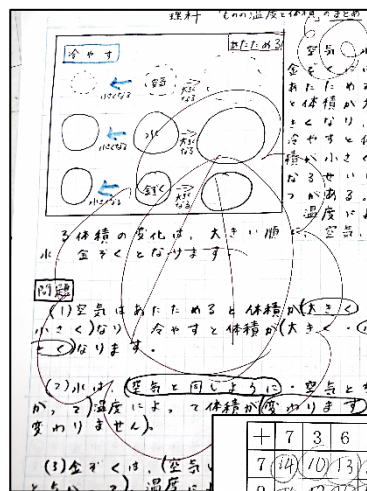 理科 「ものの温度と体積」のまとめ
冷やす
あたためる
空気
小さくなる
大きくなる
水
小さくなる
大きくなる
金ぞく
小さくなる
大きくなる
空気、水
金ぞくに
あたためる
と体積が大
きくなり、
冷やすと体
積が小さく
なるせいし
つがある。
温度によ
る体積の変化は、大きい順に、空気
水 金ぞくとなります。
問題
(1)空気はあたためると体積が(大きく
小さく)なり、冷やすと体積が(大きく・
さく)なります。
(2)水は、(空気と同じように・空気とち
がって)温度によって体積が(変わります
変わりません)。
(3)金ぞくは、(空気
とちがって)、温度に
+ 7 3 6
7 14 10 13